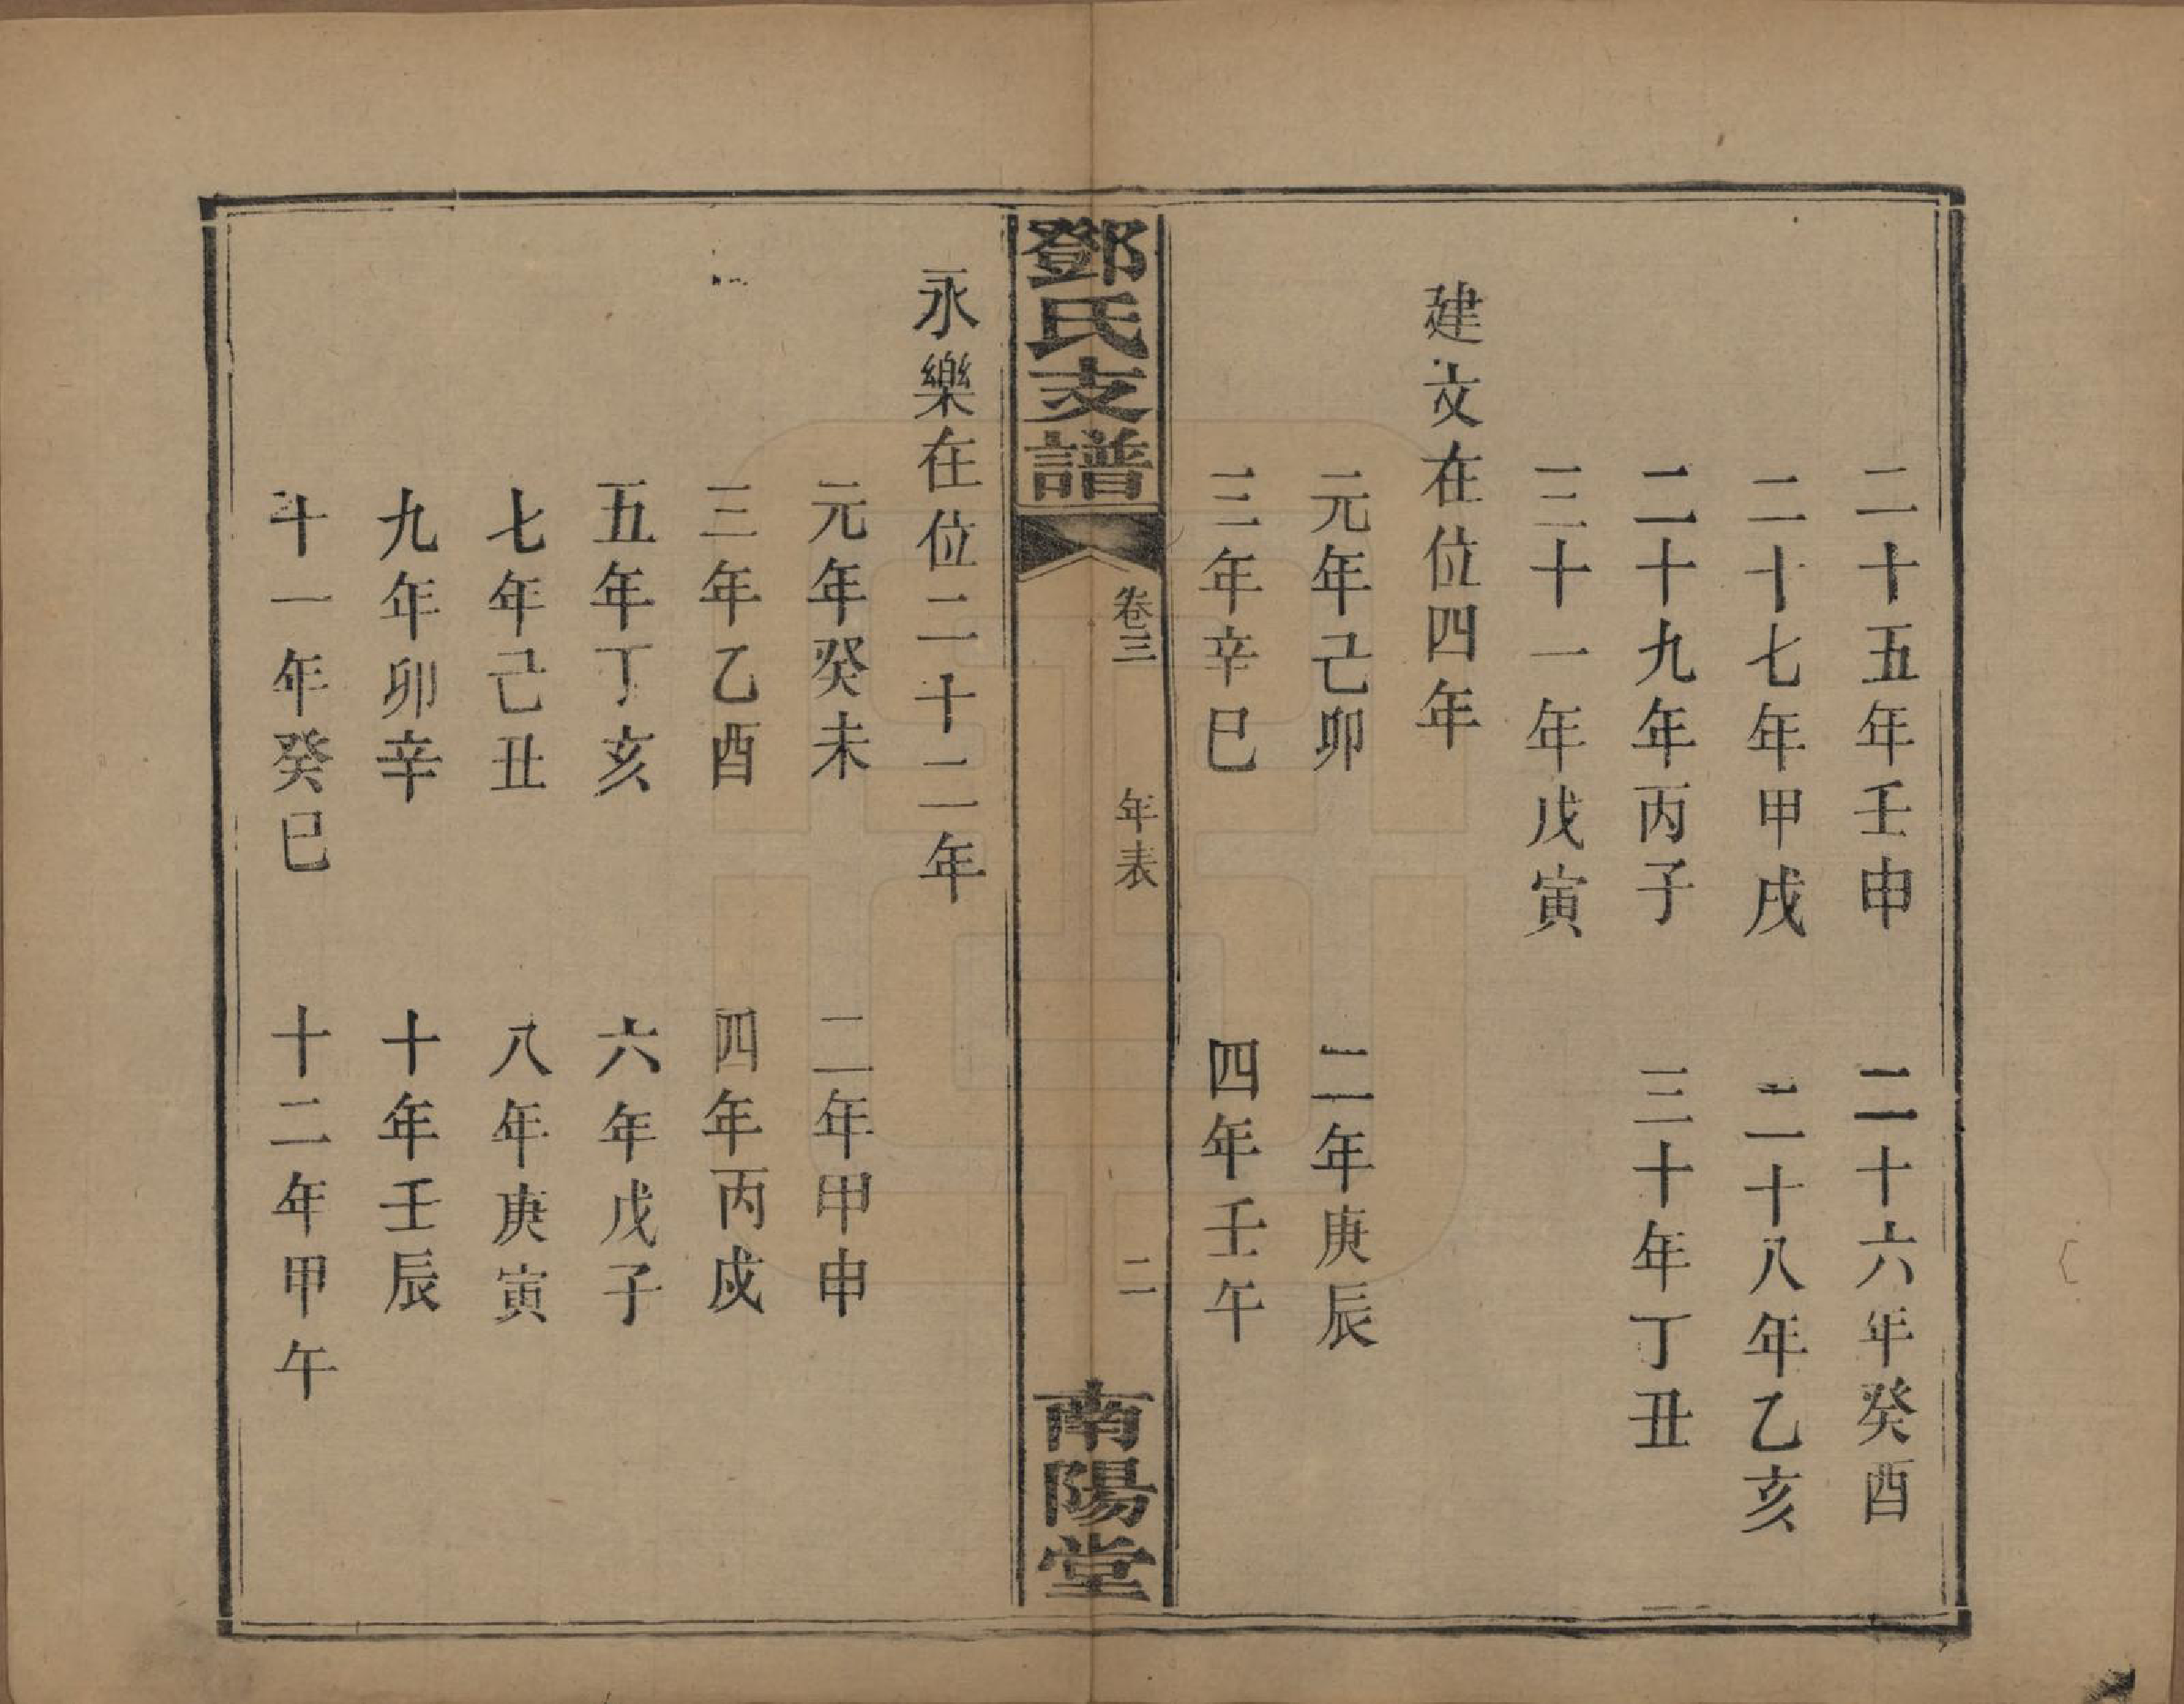 二十五年壬申　二十六年癸酉
二十七年甲戌　二十八年乙亥
二十九年丙子　三十年丁丑
三十一年戊寅
建文在位四年
元年己卯　二年庚辰
三年辛巳　四年壬午
鄧氏支譜　卷三　年表　二　南陽堂
永樂在位二十二年
元年癸未　二年甲申
三年乙酉　四年丙戌
五年丁亥　六年戊子
七年己丑　八年庚寅
九年卯辛　十年壬辰
十一年癸巳　十二年甲午